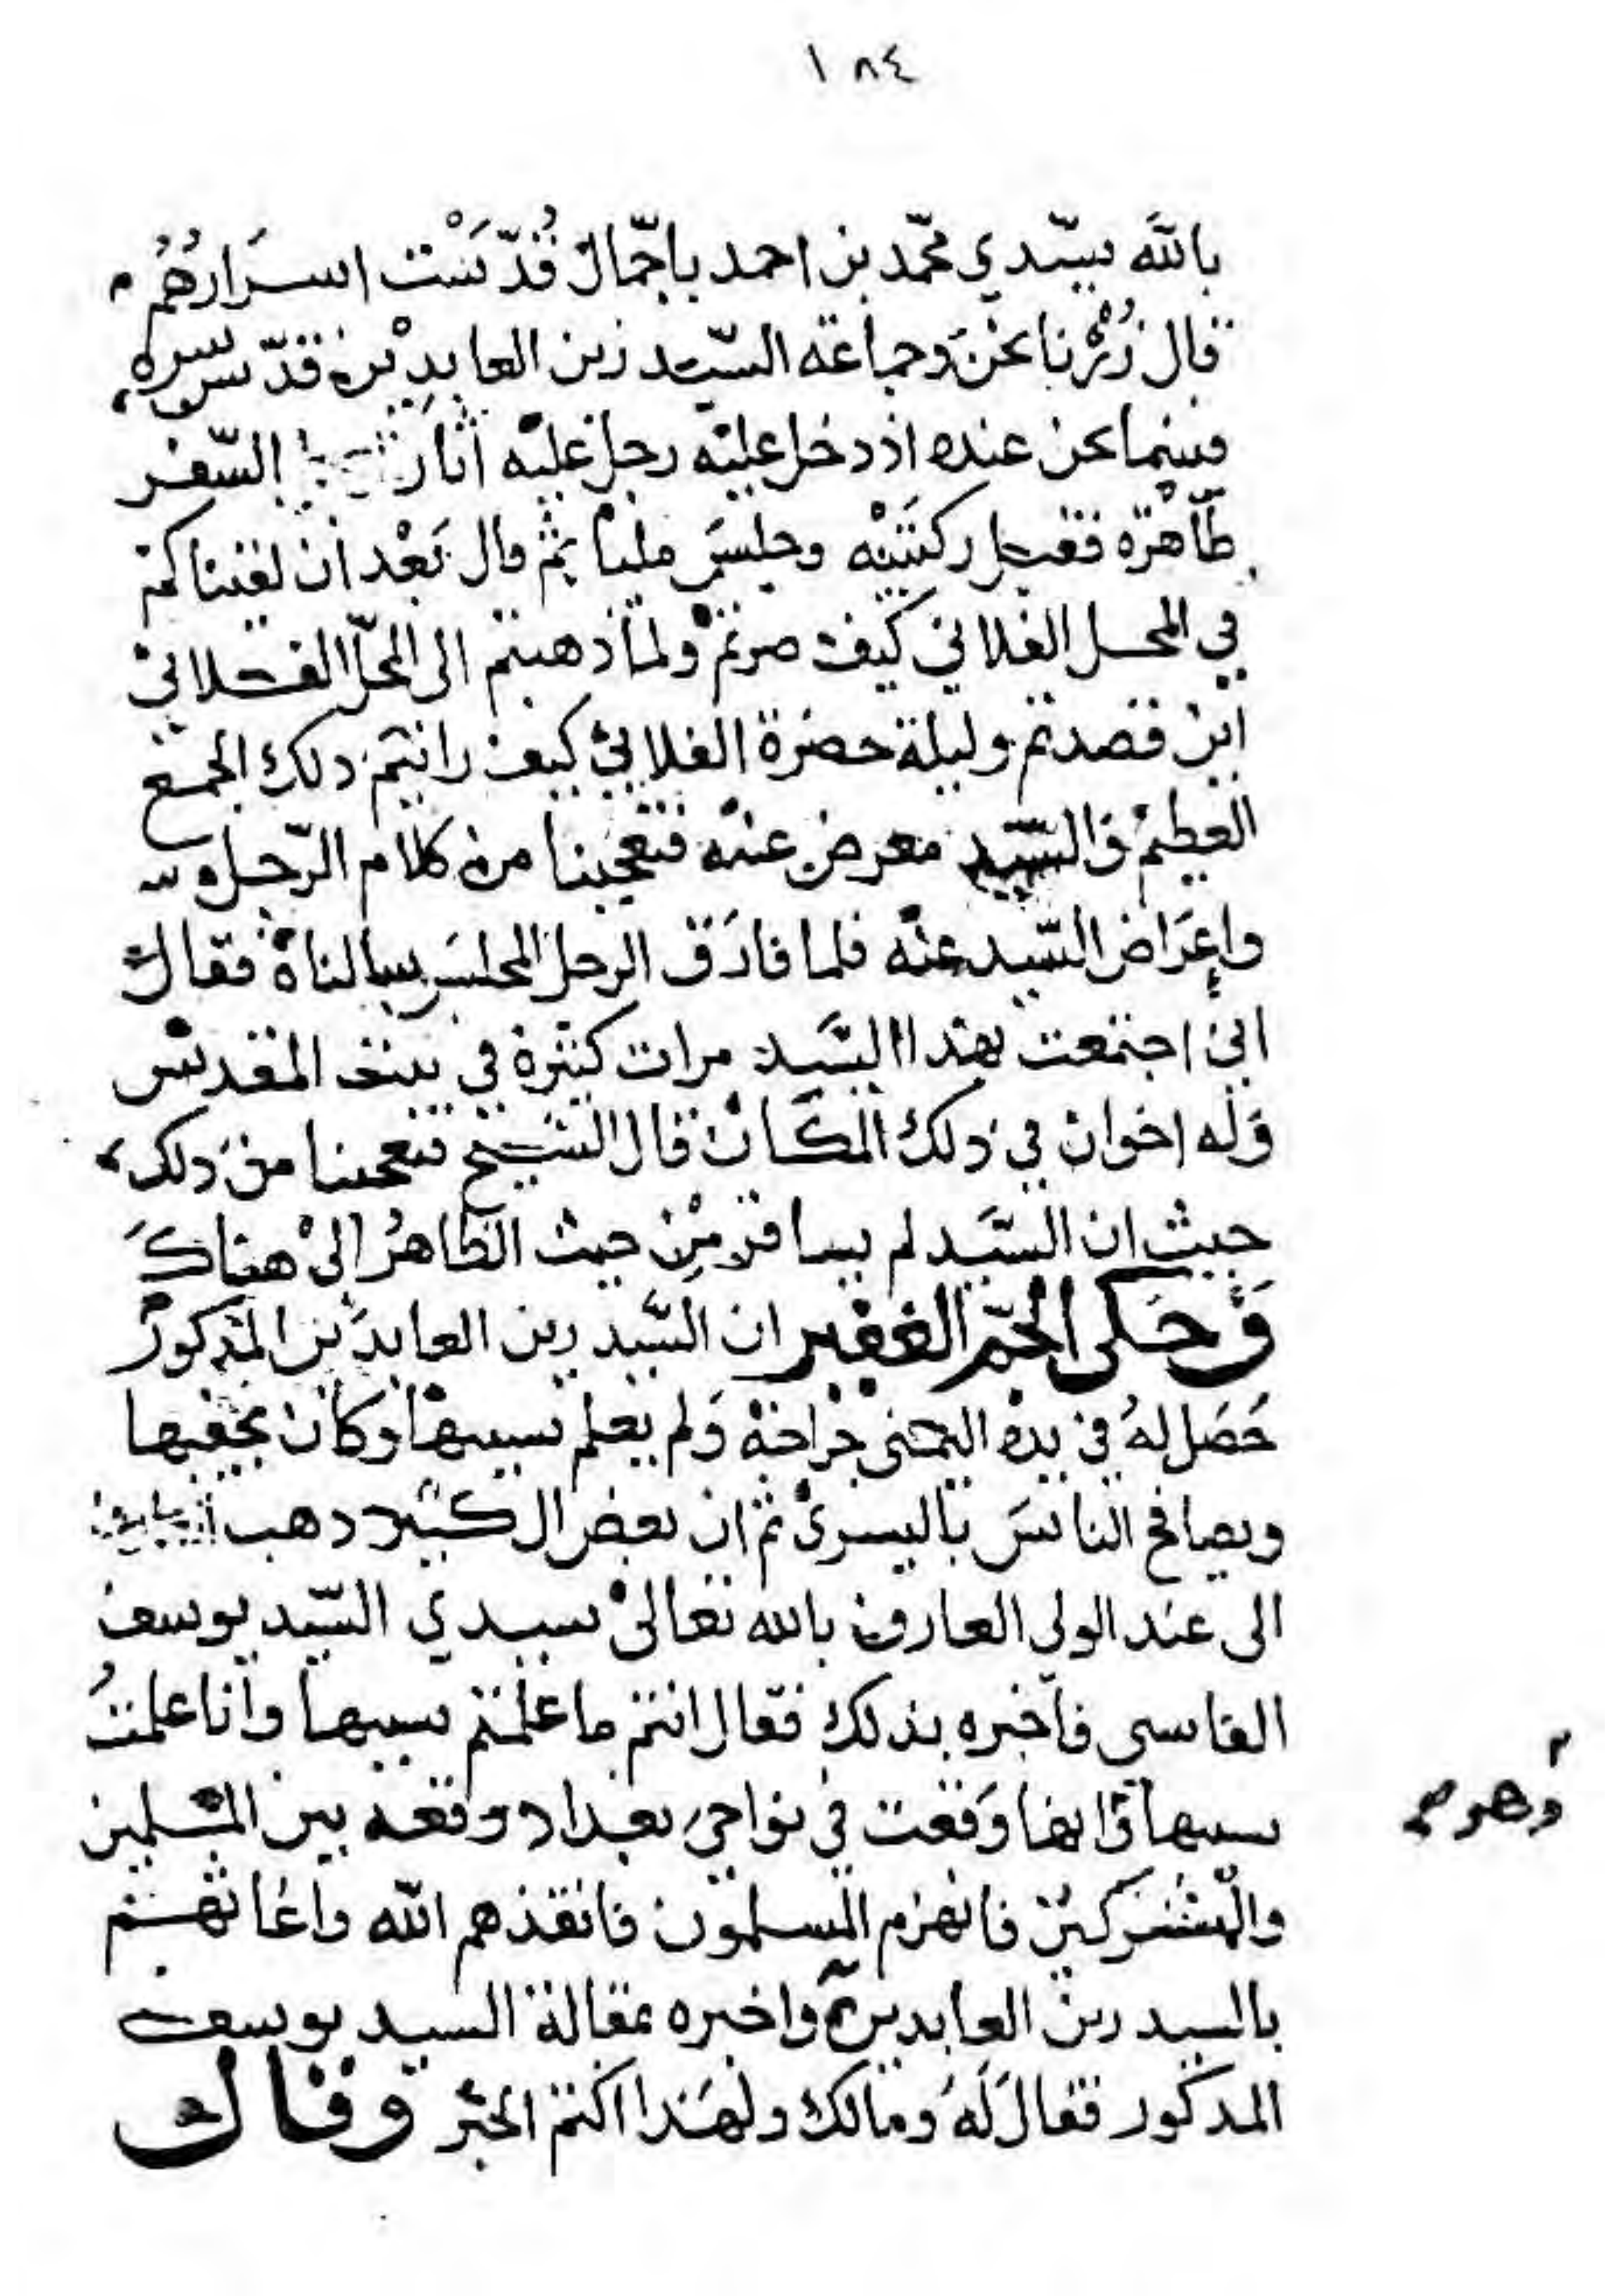 ١٨٤
بالله سيّدي محمّد بن احمد باجمّال قُدّسَتْ اسرَارُهُم
قال زُرْنا نحنُ وجماعة السّيد زين العابدِيْن قدّس سره
فبينما نحن عنده اذ دخل عليْه رجل عليْه آثار السّفر
طَاهْرَة فقبل ركبَتَيْه وجلسَ مليا ثم قال بَعْد أن لقيناكم
في المحل الفلاني كيف صرتمْ ولما ذهبتم الى المحلّ الفلانيْ
أين قصدتم وليلة حضرة الفلاني كيف رايتم ذلك الجمع
العظيم وَالسّيد معرض عنْه فتعجبنا من كلام الرّجل و
واعرَاض السّيد عنْه فلما فارَق الرجل المجلسَ سالناهْ فقال
اني اجتمعت بهذا السَّيد مرات كثيرة في بيت المقدس
وَله اخوان في ذلك المكان قال الشيخ فتعجبنا من ذلك
حيث ان السَّيد لم يسافر مِن حيث الظاهرُ الىْ هناك
وَحَكى الجمّ الغفير ان السَّيد زين العابدين المذكور
حَصَل لهُ في يده اليمنى جراحة وَلم يعلم سببها وكان يخفيها
ويصافح الناسَ باليسرىْ ثم ان بعض ال كثير ذهب
الى عند الولي العارف بالله تعالىْ سيدي السّيد يوسف
الفاسي فأخبره بذلك فقال انتم ما علمتم سببها وأنا علمتُ
سببها وَانها وَقعت في نواحي بغداد وقعه بين المسلمين
والمشركين فانهزم المسلمون فانقذهم الله واغاثهم
بالسيد زين العابدين واخبره بمقالة السيد يوسف
المذكور فقال لَهُ ومالك ولهَذا اكتم الخبر وقال
وَهو